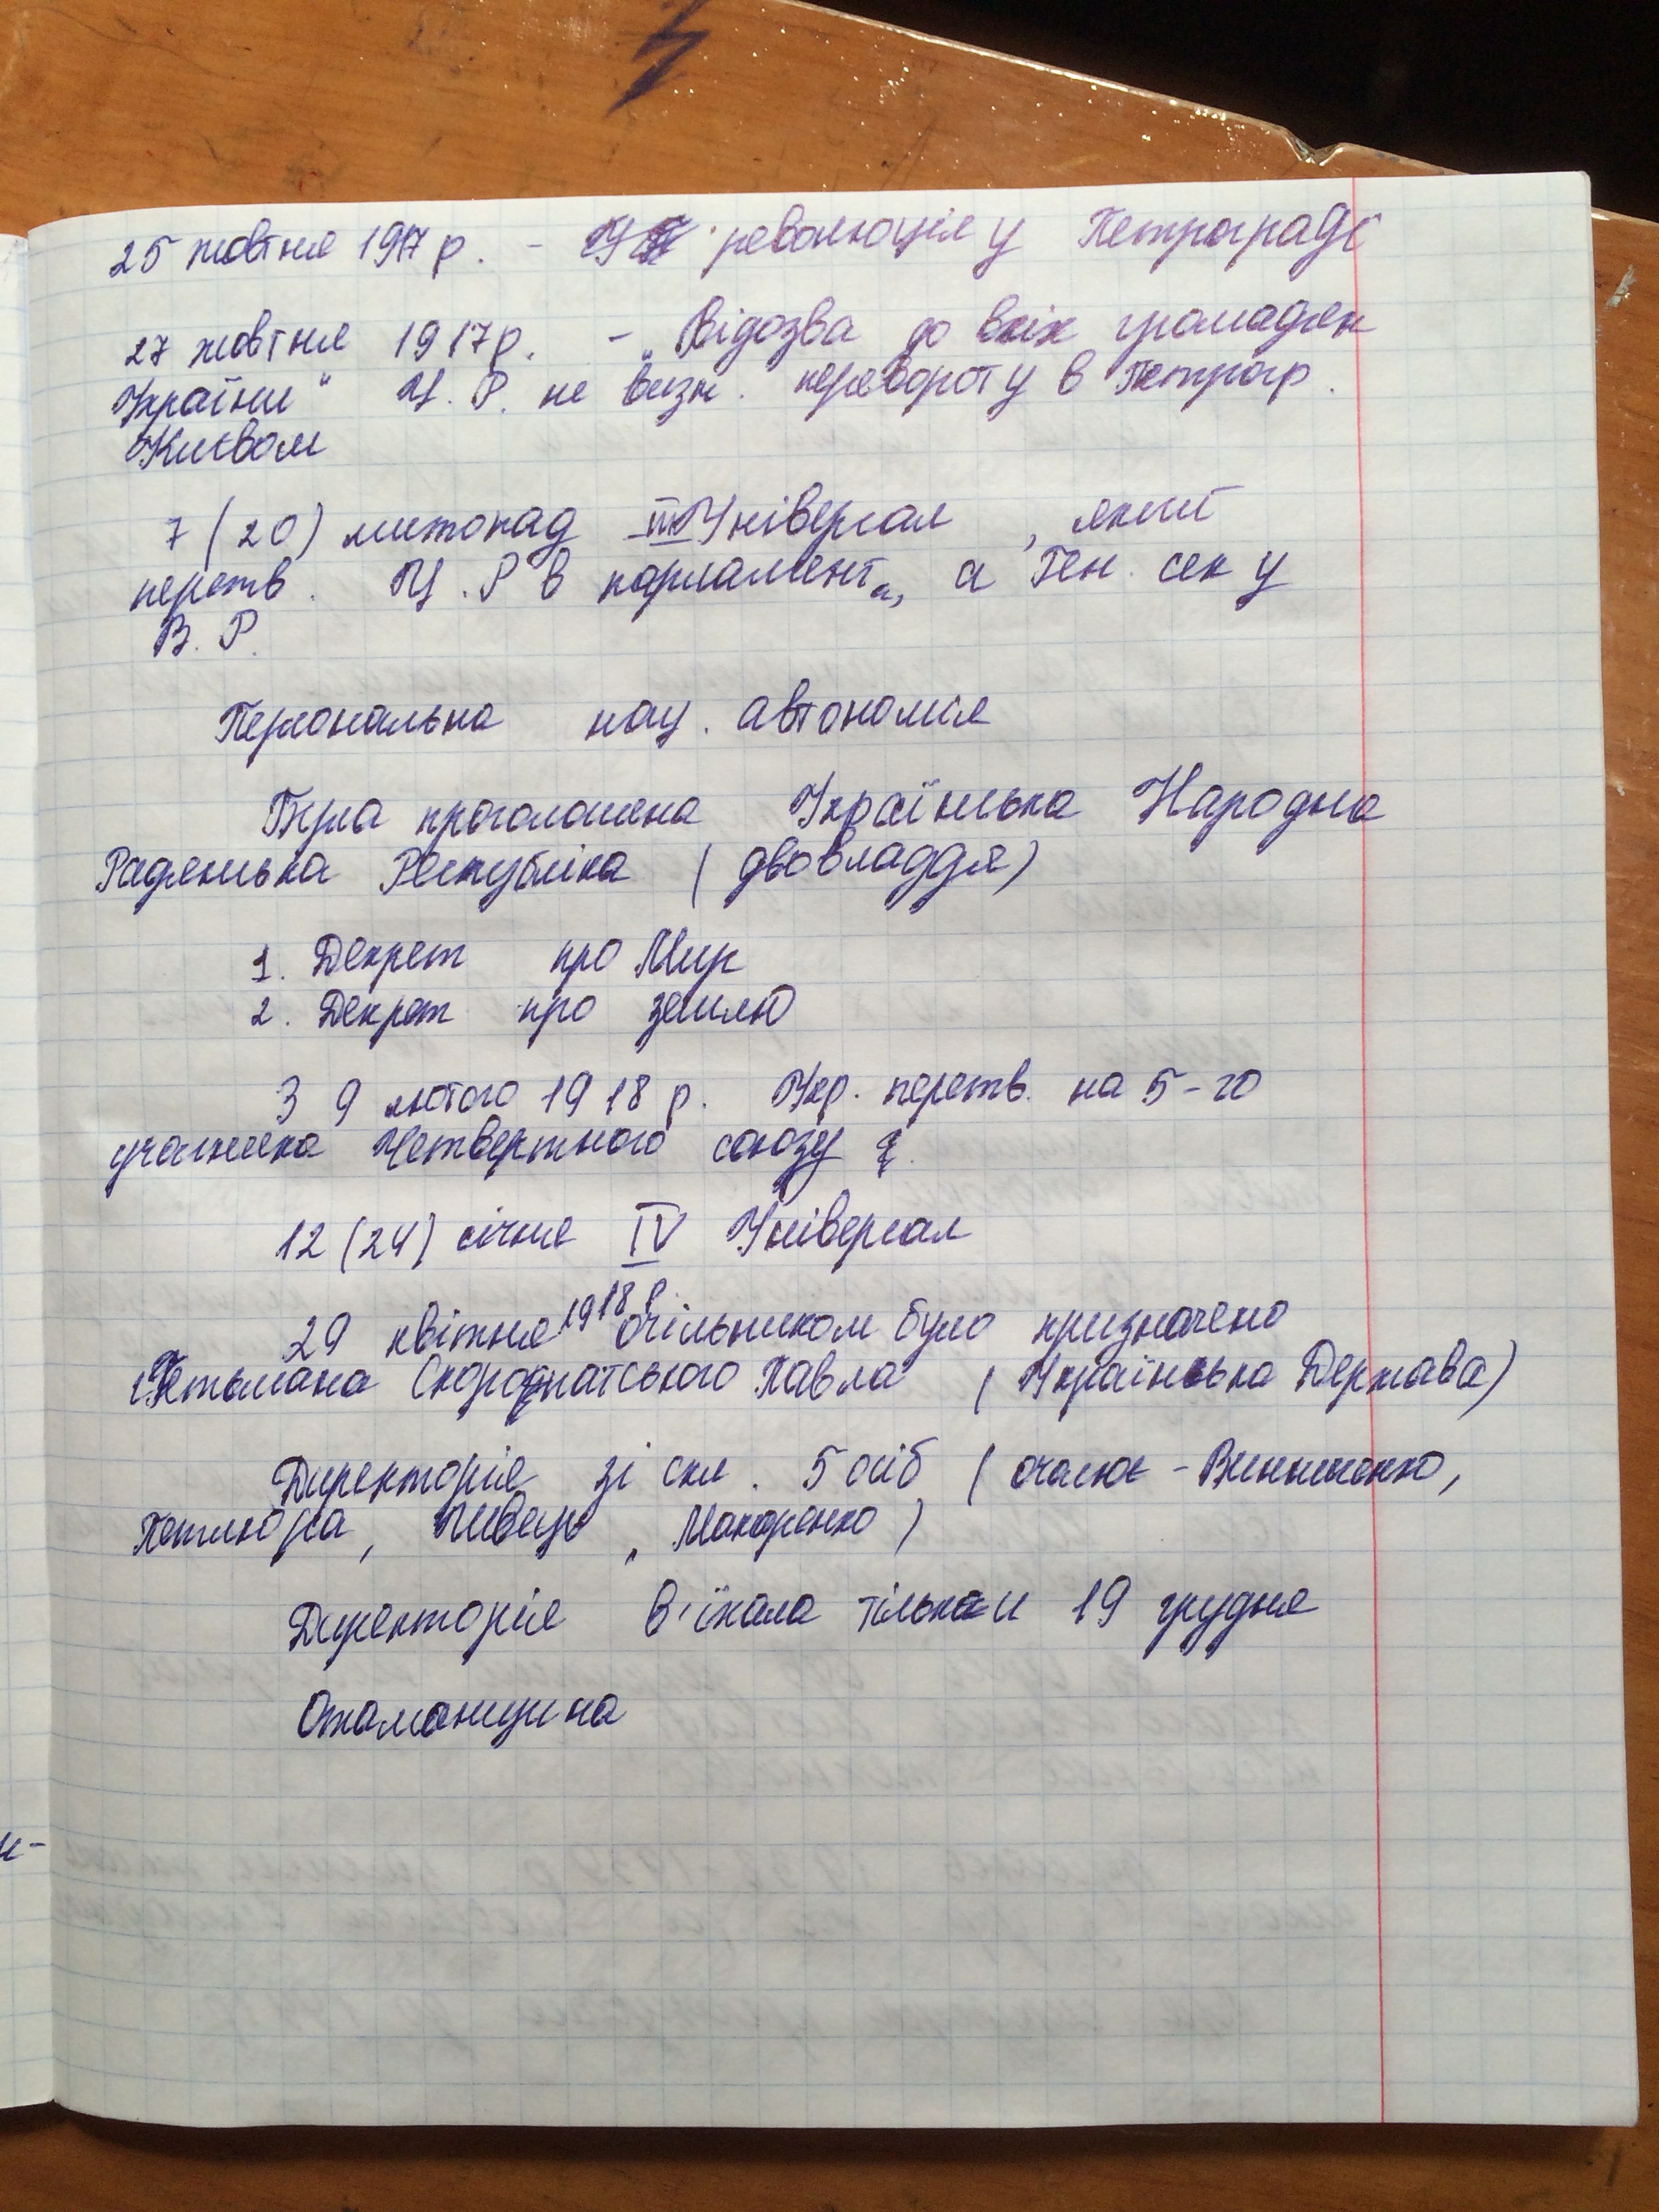 25 жовтня 1917 р. - революція у Петрограді
27 жовтня 1917р. - „Відозва до всіх громадян
України" Ц. Р. не визн. перевороту в Петрогр.
Києвом
7 (20) листопад III Універсал , який
перетв. Ц. Р в парламент, а Ген. сек у
В. Р.
Персональна нац. автономія
Була проголошена Українська Народна
Радянська Республіка ( двовладдя)
1. Декрет про Мир
2. Декрет про землю
З 9 лютого 1918 р. Укр. перетв. на 5-го
учасника Четвертного союзу
12 (24) січня IV Універсал
29 квітня 1918 р. очільником було призначено
Гетьмана Скоропатського Павла ( Українська Держава)
Директорія зі скл. 5 осіб ( очолює - Винниченко,
Петлюра, Швець, Макаренко )
Директорія в'їхала тільки 19 грудня
Отаманщина
и-